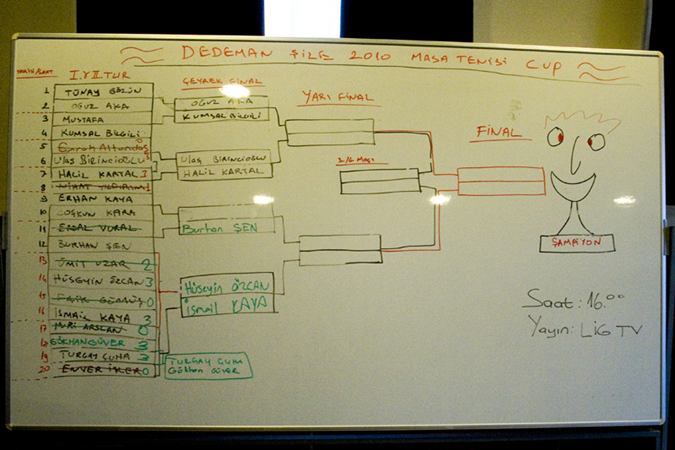 DEDEMAN ŞİLE 2010 MASA TENİSİ CUP
I. V II. TUR
ÇEYREK FİNAL
YARI FİNAL
FİNAL
1 TÜNAY
2 OĞUZ AKA
3 MUSTAFA
4 KUMSAL BİLGİLİ
5
6 ULAŞ BİRİNCİOĞLU
7 HALİL KARTAL
8 NİHAT YILDIRIM 1
9 ERHAN KAYA
10 COŞKUN KARA
11 VURAL
12 BURHAN ŞEN
13 ÜMİT UZAR 2
14 HÜSEYİN ÖZCAN 3
15 0
16 İSMAİL KAYA 3
17 NURİ ARSLAN 0
18 GÖKHAN GÜVER 3
19 TURGAY ÇUHA 3
20 ENVER İŞLER 0
OĞUZ AKA
KUMSAL BİLGİLİ
ULAŞ BİRİNCİOĞLU
HALİL KARTAL
Burhan ŞEN
Hüseyin ÖZCAN
İsmail KAYA
TURGAY
Gökhan GÜVER
ŞAMPİYON
Saat: 16.00
Yayın: LİG TV